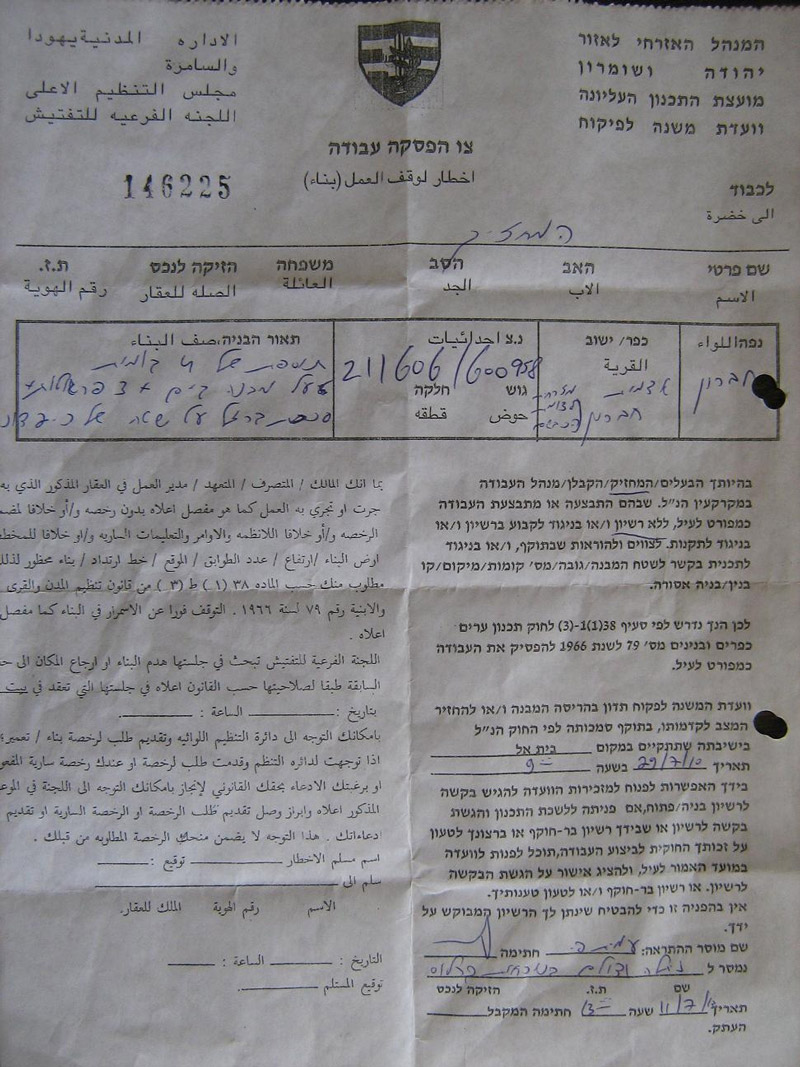 המנהל האזרחי לאזור
יהודה ושומרון
מועצת התכנון העליונה
וועדת משנה לפיקוח
الاداره المدنية يهودا
والسامرة
مجلس التنظيم الاعلى
اللجنه الفرعيه للتفتيش
צו הפסקה עבודה
اخطار لوقف العمل (بناء)
146225
לכבוד
الى خضرة
המחזיק
שם פרטי האב הסב משפחה הזיקה לנכס ת.ז.
الاسم الاب الجد العائلة الصله للعقار رقم الهوية
נפה اللواء
חברון
כפר/ ישוב
القرية
חברון
נ.צ احداثيات
211606/600958
גוש חלקה
حوض قطقه
תאור הבניה، صف البناء
תוספת של 4
בהיותך הבעלים/המחזיק/הקבלן/מנהל העבודה
במקרקעין הנ"ל. שבהם התבצעה או מתבצעת העבודה
כמפורט לעיל, ללא רשיון ו/או בניגוד לקבוע ברשיון ו/או
בניגוד לתקנות. לצווים ולהוראות שבתוקף, ו/או בניגוד
לתכנית בקשר לשטח המבנה/גובה/מס' קומות/מיקום/קו
בנין/בניה אסורה.
לכן הנך נדרש לפי סעיף 38(1)-(3) לחוק תכנון ערים
כפרים ובנינים מס' 79 לשנת 1966 להפסיק את העבודה
כמפורט לעיל.
וועדת המשנה לפקוח תדון בהריסה המבנה ו/או להחזיר
המצב לקדמותו, בתוקף סמכותה לפי החוק הנ"ל
בישיבתה שתתקיים במקום בית אל
תאריך 29/7/10 בשעה 9
בידך האפשרות לפנות למזכירות הוועדה להגיש בקשה
לרשיון בניה/פתוח,אם פניתה ללשכת התכנון והגשת
בקשה לרשיון או שבידך רשיון בר-חוקף או ברצונך לטעון
על זכותך החוקית לביצוע העבודה,תוכל לפנות לוועדה
במועד האמור לעיל, ולהציג אישור על הגשת הבקשה
לרשיון. או רשיון בר-חוקף ו/או לטעון טענותיך.
אין בהפניה זו כדי להבטיח שינתן לך הרשיון המבוקש על
ידך.
שם מוסר ההתראה: חתימה
נמסר ל
שם ת.ז. הזיקה לנכס
תאריך 11/7/ שעה 13 חתימה המקבל
העתק.
بما انك المالك / المتصرف / المتعهد / مدير العمل في العقار المذكور الذي به
جرت او تجري به العمل كما هو مفصل اعلاه بدون رخصه و/أو خلافا
الرخصه و/أو خلافا للانظمه والاوامر والتعليمات الساريه و/او خلافا
ارض البناء /ارتفاع / عدد الطوابق / الموقع / خط ارتداد / بناء محظور لذلك
مطلوب منك حسب الماده ٣٨ (١) ط (٣) من قانون تنظيم المدن والقرى
والابنية رقم ٧٩ لسنة ١٩٦٦ . التوقف فورا عن الاسمرار في البناء كما مفصل
اعلاه .
اللجنة الفرعية للتفتيش تبحث في جلستها هدم البناء او ارجاع المكان الى
السابقة طبقا لصلاحيتها حسب القانون اعلاه في جلستها التي تعقد في بيت
بتاريخ : الساعة :
بامكانك التوجه الى دائرة التنظيم اللوائيه وتقديم طلب لرخصة بناء / تعمير؛
اذا توجهت لدائره التنظم وقدمت طلب لرخصة او عندك رخصة سارية
او برغبتك الادعاء بحقك القانوني لإنجاز بامكانك التوجه الى اللجنة في
المذكور اعلاه وابراز وصل تقديم طلب الرخصة او الرخصة السارية او تقديم
ادعاءاتك . هذا التوجه لا يضمن منحك الرخصة المطلوبه من قبلك .
اسم مسلم الاخطار توقيع :
سلم الى
الاسم رقم الهوية الملك للعقار.
التاريخ : الساعة :
توقيع المستلم